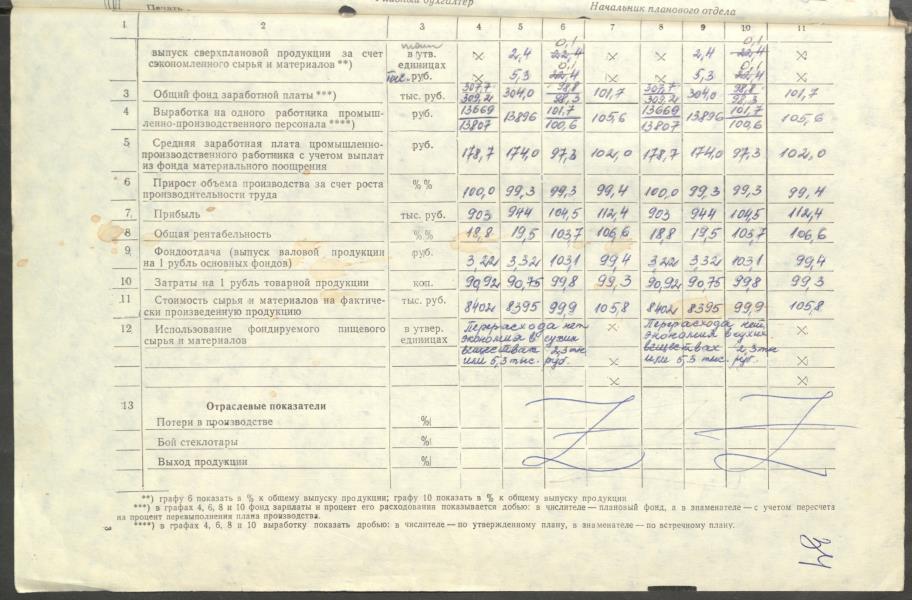 Главный бухгалтер
Начальник планового отдела
Печать
1 2 3 4 5 6 7 8 9 10 11
выпуск сверхплановой продукции за счет сэкономленного сырья и материалов **)
тонн
в утв. единицах × 2,4 0,1 22,4 × × 2,4 0,1 22,4 ×
тыс. руб. × 5,3 0,1 22,4 × × 5,3 0,1 22,4 ×
3 Общий фонд заработной платы ***) тыс. руб. 307,7/309,2 304,0 98,8/98,3 101,7 307,7/309,2 304,0 98,8/98,3 101,7
4 Выработка на одного работника промыш-
ленно-производственного персонала ****) руб. 13669/13807 13896 101,7/100,6 105,6 13669/13807 13896 101,7/100,6 105,6
5 Средняя заработная плата промышленно-
производственного работника с учетом выплат
из фонда материального поощрения руб. 178,7 174,0 97,3 102,0 178,7 174,0 97,3 102,0
6 Прирост объема производства за счет роста
производительности труда %% 100,0 99,3 99,3 99,4 100,0 99,3 99,3 99,4
7 Прибыль тыс. руб. 903 944 104,5 112,4 903 944 104,5 112,4
8 Общая рентабельность %% 18,8 19,5 103,7 106,6 18,8 19,5 103,7 106,6
9 Фондоотдача (выпуск валовой продукции
на 1 рубль основных фондов) руб. 3,221 3,321 103,1 99,4 3,221 3,321 103,1 99,4
10 Затраты на 1 рубль товарной продукции коп. 90,92 90,75 99,8 99,3 90,92 90,75 99,8 99,3
11 Стоимость сырья и материалов на фактиче-
ски произведенную продукцию тыс. руб. 8402 8395 99,9 105,8 8402 8395 99,9 105,8
12 Использование фондируемого пищевого
сырья и материалов
в утвер.
единицах
Перерасхода нет
экономия в сухих
веществах 2,3 тн
или 5,3 тыс. руб.
×
×
×
Перерасхода нет
экономия в сухих
веществах 2,3 тн
или 5,3 тыс. руб.
×
×
×
13 Отраслевые показатели
Потери в производстве %
Бой стеклотары %
Выход продукции %
**) графу 6 показать в % к общему выпуску продукции; графу 10 показать в % к общему выпуску продукции
***) в графах 4, 6, 8 и 10 фонд зарплаты и процент его расходования показывается добью: в числителе — плановый фонд, а в знаменателе — с учетом пересчета
на процент перевыполнения плана производства.
****) в графах 4, 6, 8 и 10 выработку показать дробью: в числителе — по утвержденному плану, в знаменателе — по встречному плану.